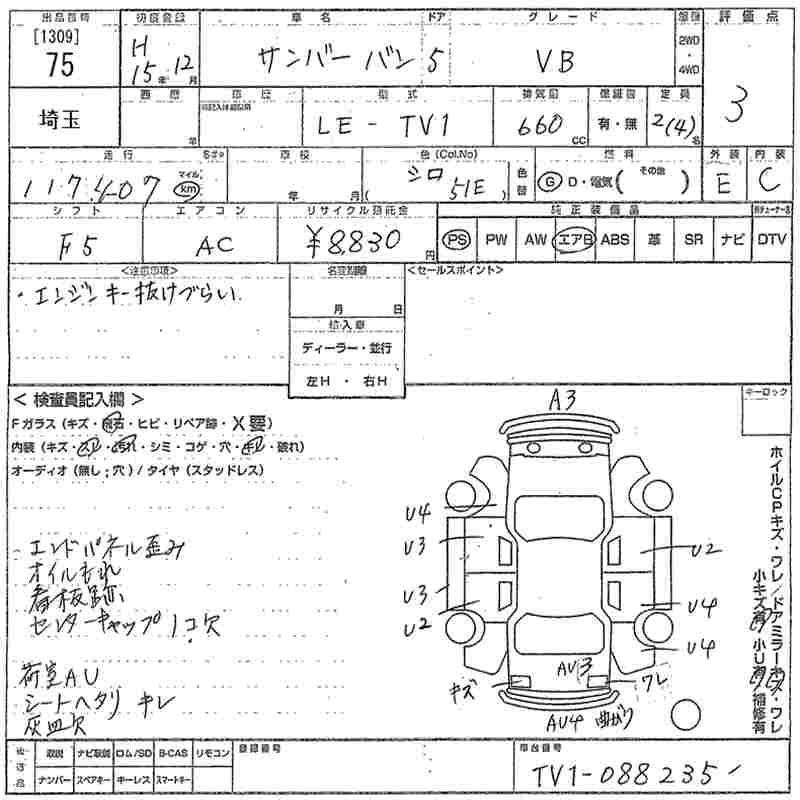 出品番号 初度登録 車名 ドア グレード 駆動 評価点
[1309]
75 H 15年 12月 サンバー バン 5 VB 2WD・4WD 3
埼玉 車歴 型式 排気量 定員
年 LE-TV1 660cc 有・無 2(4)名
走行 マイル km 車検 色(Col.No) 色替 燃料 外装 内装
117,407 年 月 シロ (51E) G D・電気( その他 ) E C
シフト エアコン リサイクル預託金 純正装備品
F5 AC ¥8,830円 PS PW AW エアB ABS 革 SR ナビ DTV
<注意事項> 名変期限 <セールスポイント>
・エンジンキー抜けづらい
月 日
輸入車
ディーラー・並行
左H・右H
< 検査員記入欄 > キーロック
Fガラス(キズ・飛石・ヒビ・リペア跡・X要)
内装(キズ・スレ・汚れ・シミ・コゲ・穴・キレ・破れ)
オーディオ(無し;穴)/タイヤ(スタッドレス)
エンドパネル歪み
オイルもれ
看板跡
センターキャップ1コ欠
荷室AU
シートヘタリ キレ
灰皿欠
A3
U4
U3
U3
U2
U2
U4
U4
AU3
キズ
ワレ
AU4 曲がり
ホイルCPキズ・ワレ/ドアミラーキズ・ワレ
小キズ有 小U有 補修有
後送品 取説 ナビ取説 ロム/SD B-CAS リモコン 登録番号 車台番号
ナンバー スペアキー キーレス スマートキー TV1-088235